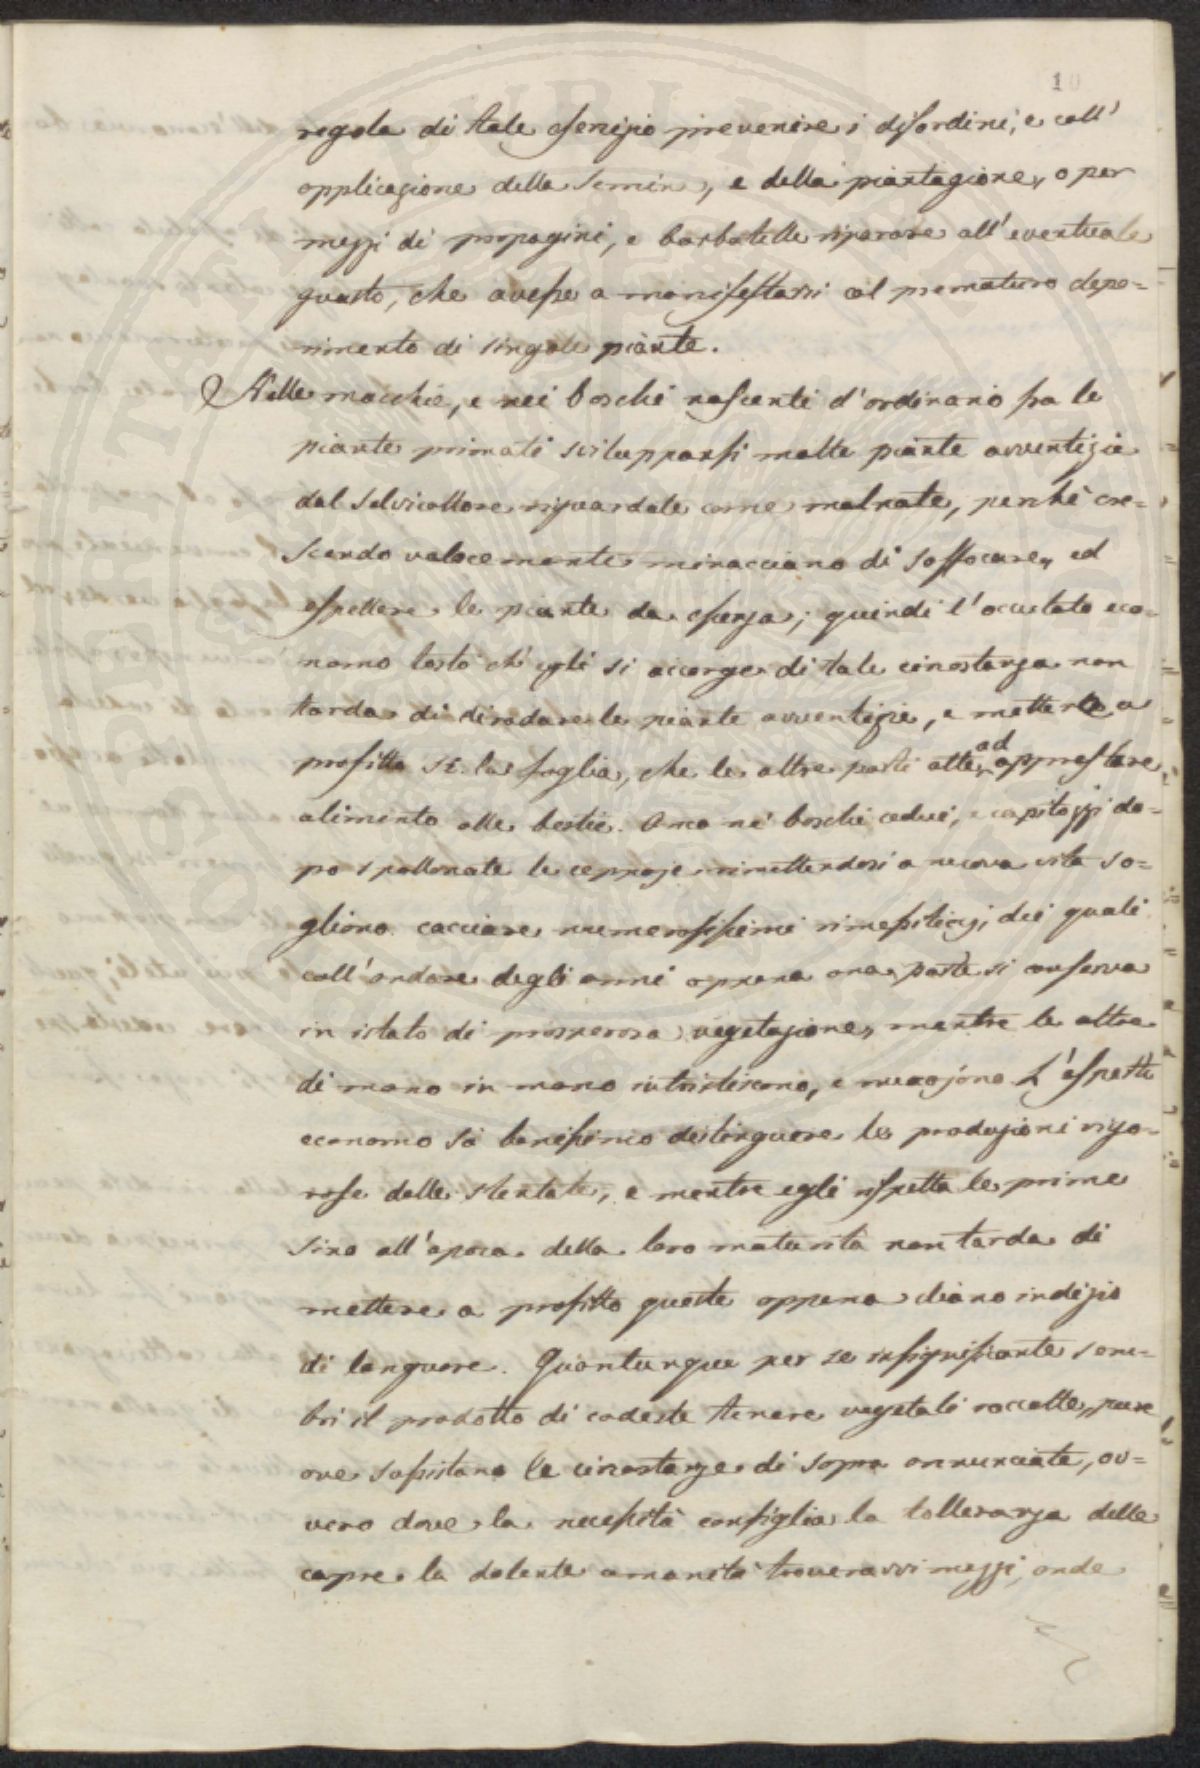 10
regola di tale esercizio prevenire i disordini, e coll'
applicazione della semina, e della piantagione, o per
mezzi di propagini, e barbatelle riparare all'eventuale
guasto, che avesse a manifestarsi col prematuro depe=
rimento di singole piante.
Nelle macchie, e nei boschi nascenti d'ordinario fra le
piante primati svilupparsi molte piante avventizie
dal selvicoltore risguardate come malnate, perchè cre=
scendo velocemente minacciano di soffocare, ed
espellere le piante da essenza; quindi l'occulato eco=
nomo tosto ch'egli si accorge di tale circostanza non
tarda di diradare le piante avventizie, e metterle a
profitto sì la foglia, che le altre parti atte ad apprestare
alimento alle bestie. Anco ne' boschi cedui, e capitozzi do=
po spollonate le ceppaje rimettendosi a nuova vita so=
gliono cacciare numerosissimi rimessiticcj, dei quali
coll'andare degli anni appena una parte si conserva
in istato di prosperosa vegetazione, mentre le altre
di mano in mano intristiscono, e muojono. L'esperto
economo sà benissimo distinguere le produzioni vigo=
rose dalle stentate, e mentre egli rispetta le prime
sino all'epoca della loro maturità non tarda di
mettere a profitto queste appena diano indizio
di languore. Quantunque per se insignificante sem=
bri il prodotto di codeste tenere vegetali raccolte, pure
ove sussistano le circostanze di sopra annunciate, ov=
vero dove la necessità consiglia la tolleranza delle
capre la dolente umanità troverà vi mezzi, onde